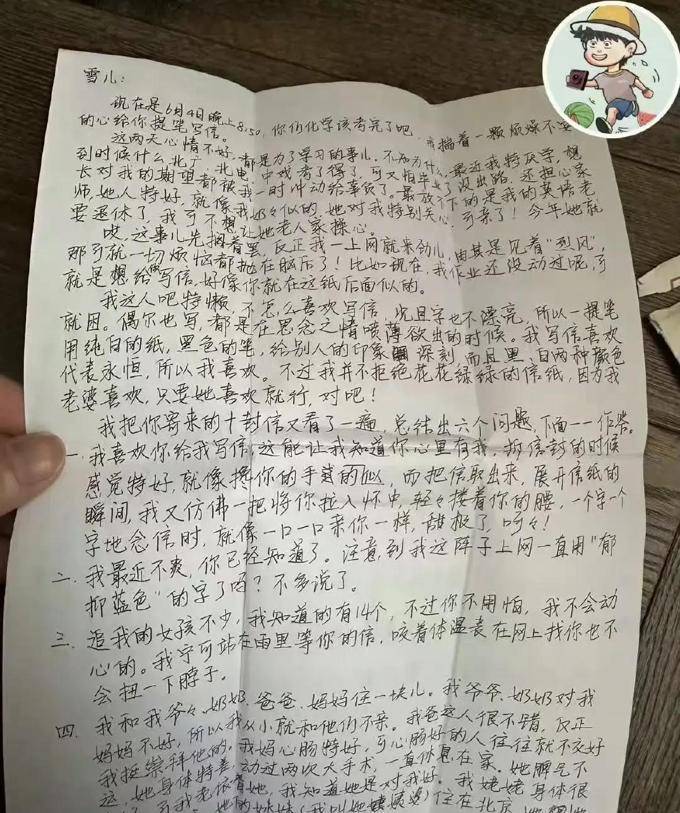 雪儿：
现在是6月4日晚上8:50，你们化学该考完了吧，我揣着一颗烦燥不安
的心给你提笔写信。
这两天心情不好，都是为了学习的事儿，不知为什么，最近我特厌学，想
到时候什么北广、北电、中戏考不了得了，可又怕毕业了没出路，还担心家
长对我的期望都被我一时冲动给辜负了。最放不下的是我的英语老
师，她人特好，就像我奶々似的，她对我特别关心，可亲了！今年她就
要退休了，我可不想让她老人家操心。
哎，这事儿先搁着罢，反正我一上网就来劲儿，由其是见着"烈风"，
那可就一切烦恼都抛在脑后了！比如说现在，我作业还没动过呢，可
就是想给你写信，好像你就在这纸后面似的。
我这人吧特懒，不怎么喜欢写信，况且字也不漂亮，所以一提笔
就困。偶尔也写，都是在思念之情喷薄欲出的时候。我写信喜欢
用纯白的纸，黑色的笔，给别人的印象深刻，而且黑、白两种颜色
代表永恒，所以我喜欢。不过我并不拒绝花花绿绿的信纸，因为我
老婆喜欢，只要她喜欢就行，对吧！
我把你寄来的十封信又看了一遍，总结出六个问题，下面一一作答。
一.我喜欢你给我写信，这能让我知道你心里有我，拆信封的时候
感觉特好，就像搀你的手似的，而把信取出来，展开信纸的
瞬间，我又仿佛一把将你拉入怀中，轻々搂着你的腰，一个字一个
字地念信时，就像一口一口亲你一样，甜极了，呵々！
二.我最近不爽，你已经知道了。注意到我这阵子上网一直用"郁
抑蓝色"的字了吗？不多说了。
三.追我的女孩不少，我知道的有14个，不过你不用怕，我不会动
心的。我宁可站在雨里等你的信，咬着体温表在网上找你也不
会扭一下脖子。
四.我和我爷々、奶奶、爸爸、妈妈住一块儿。我爷爷、奶奶对我
妈妈不好，所以我从小就和他们不亲。我爸这人很不错，反正
我挺崇拜他的。我妈心肠特好，可心肠好的人往往就不交好
运，她身体特差，动过两次大手术，一直休息在家。她脾气不
可我老依着她，我知道她是对我好。我姥姥身体很
她的妹妹（我叫她姨姥婆）住在北京